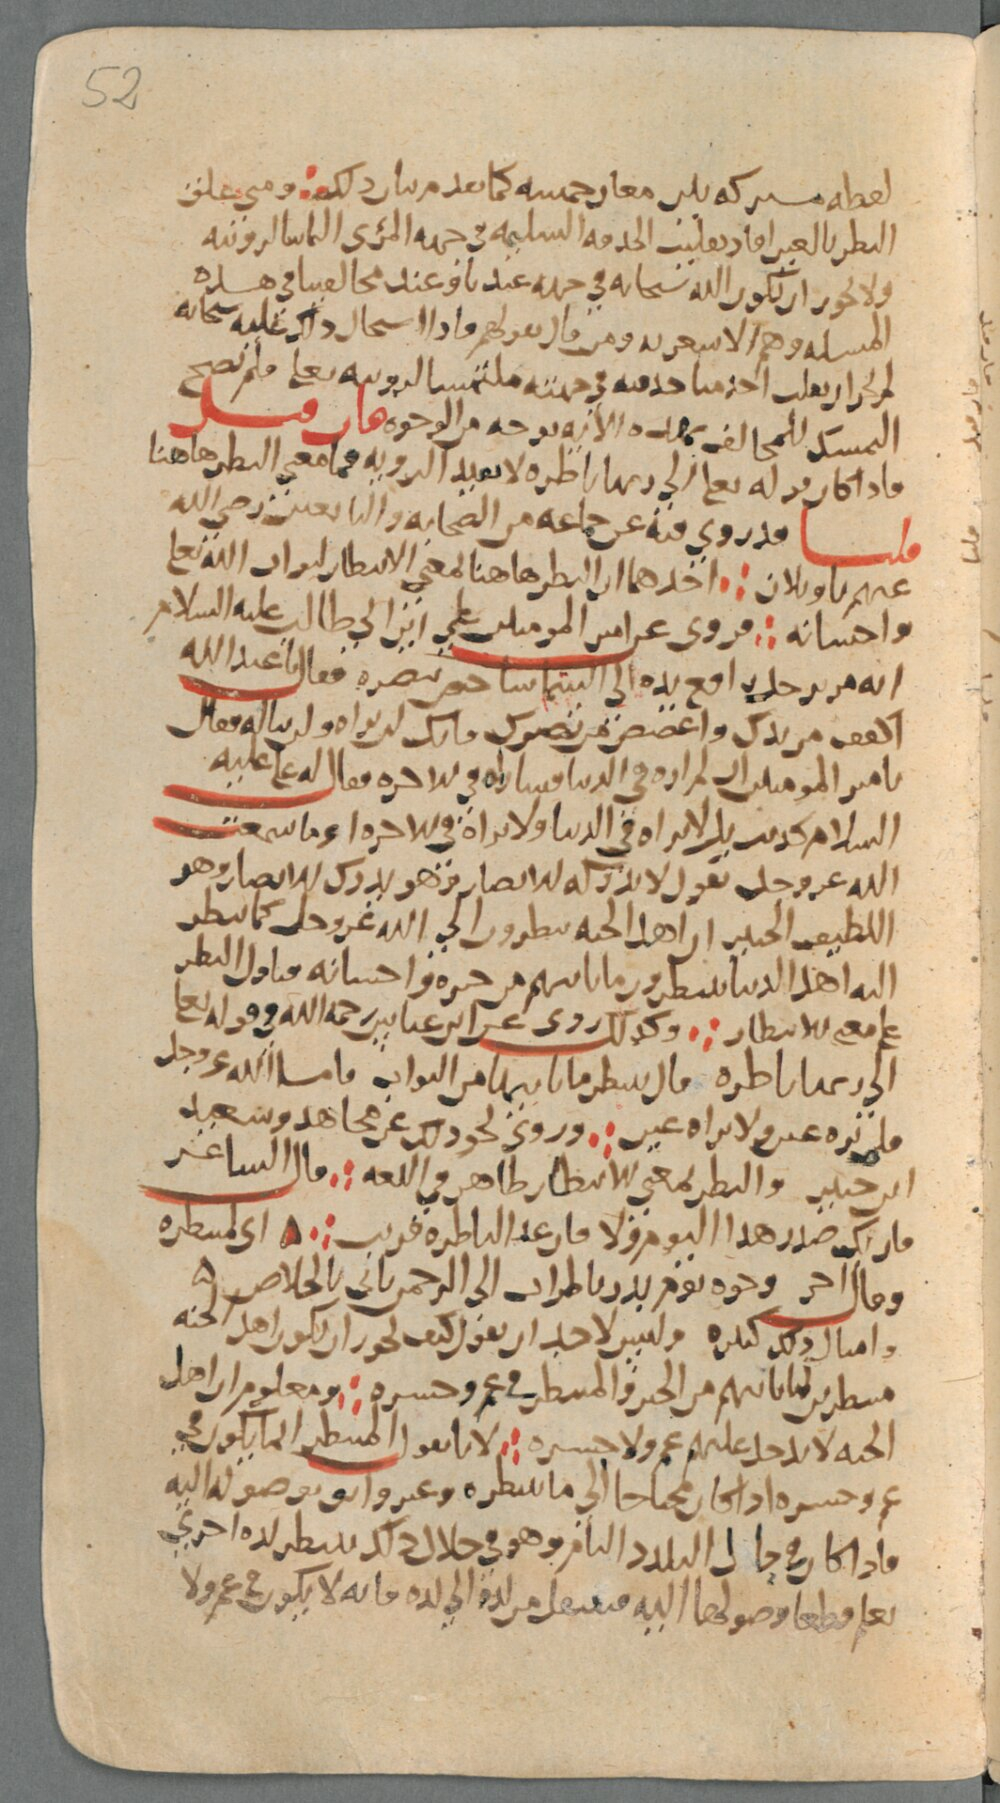 52
لفظه مشتركه بين معان خمسه كما تقدم بيان ذلك ومتى علق
النظر بالعين افاد تقليب الحدقه السليمه في جهه المرئ التماسا لرؤيته
ولا يجوز ان يكون الله سبحانه في جهه عندنا وعند مخالفينا في هذه
المسله وهم الاشعريه ومن قال بقولهم فاذا استحال ذلك عليه سبحانه
لم يجز ان يقلب احدنا حدقته في جهته ملتمسا لرويته تعلى فلم يصح
التمسك للمخالف بهذه الايه بوجه من الوجوه فان قيل
فاذا كان قوله تعلى الى ربها ناظره لا يفيد الرويه فما معنى النظر هاهنا
قلنا قد روي فيه عن جماعه من الصحابه والتابعين رضي الله
عنهم تاويلان احدهما ان النظر هاهنا بمعنى الانتظار لثواب الله تعلى
واحسانه فروى عن امير المومنين علي ابن ابي طالب عليه السلام
انه مر برجل رافع يده الى السما شاخص ببصره فقال يا عبدالله
اكفف من يدك واغضض من بصرك فانك لن تراه ولن تناله فقال
يا مير المومنين ان لم اره في الدنيا فساراه في الاخره فقال له علي عليه
السلام كذبت بل لا تراه في الدنيا ولا تراه في الاخره اوما سمعت
الله عز وجل يقول لا تدركه الابصار وهو يدرك الابصار وهو
اللطيف الخبير ان اهل الجنه ينظرون الى الله عز وجل كما ينظر
اليه اهل الدنيا ينتظرون ما ياتيهم من خيره واحسانه فتاول النظر
على معنى الانتظار وكذلك روى عن ابن عباس رحمه الله في قوله تعلى
الى ربها ناظره قال تنتظر ما ياتيها من الثواب فاما الله عز وجل
فلم تره عين ولا تراه عين وروي نحو ذلك عن مجاهد وسعيد
ابن جبير والنظر بمعنى الانتظار ظاهر في اللغه قال الشاعر
فان يك صدر هذا اليوم ولا فان غدا لناظره قريب اي لمنتظره
وقال اخر وجوه يوم بدر ناظرات الى الرحمن ياتي بالخلاص
وامثال ذلك كثيره وليس لاحد ان يقول كيف يجوز ان يكون اهل الجنه
منتظرين لما ياتيهم من الخير والمنتظر في غم وحسره ومعلوم ان اهل
الجنه لا يدخل عليهم غم ولا حسره لانا نقول المنتظر انما يكون في
غم وحسره اذا كان محتاجا الى ما ينتظره وغير واثق بوصوله اليه
فاذا كان في حال التلذذ التام وهو في خلال ذلك ينتظر لذه اخرى
يعلم قطعا وصولها اليه فينتقل من لذه الى لذه فانه لا يكون في غم ولا